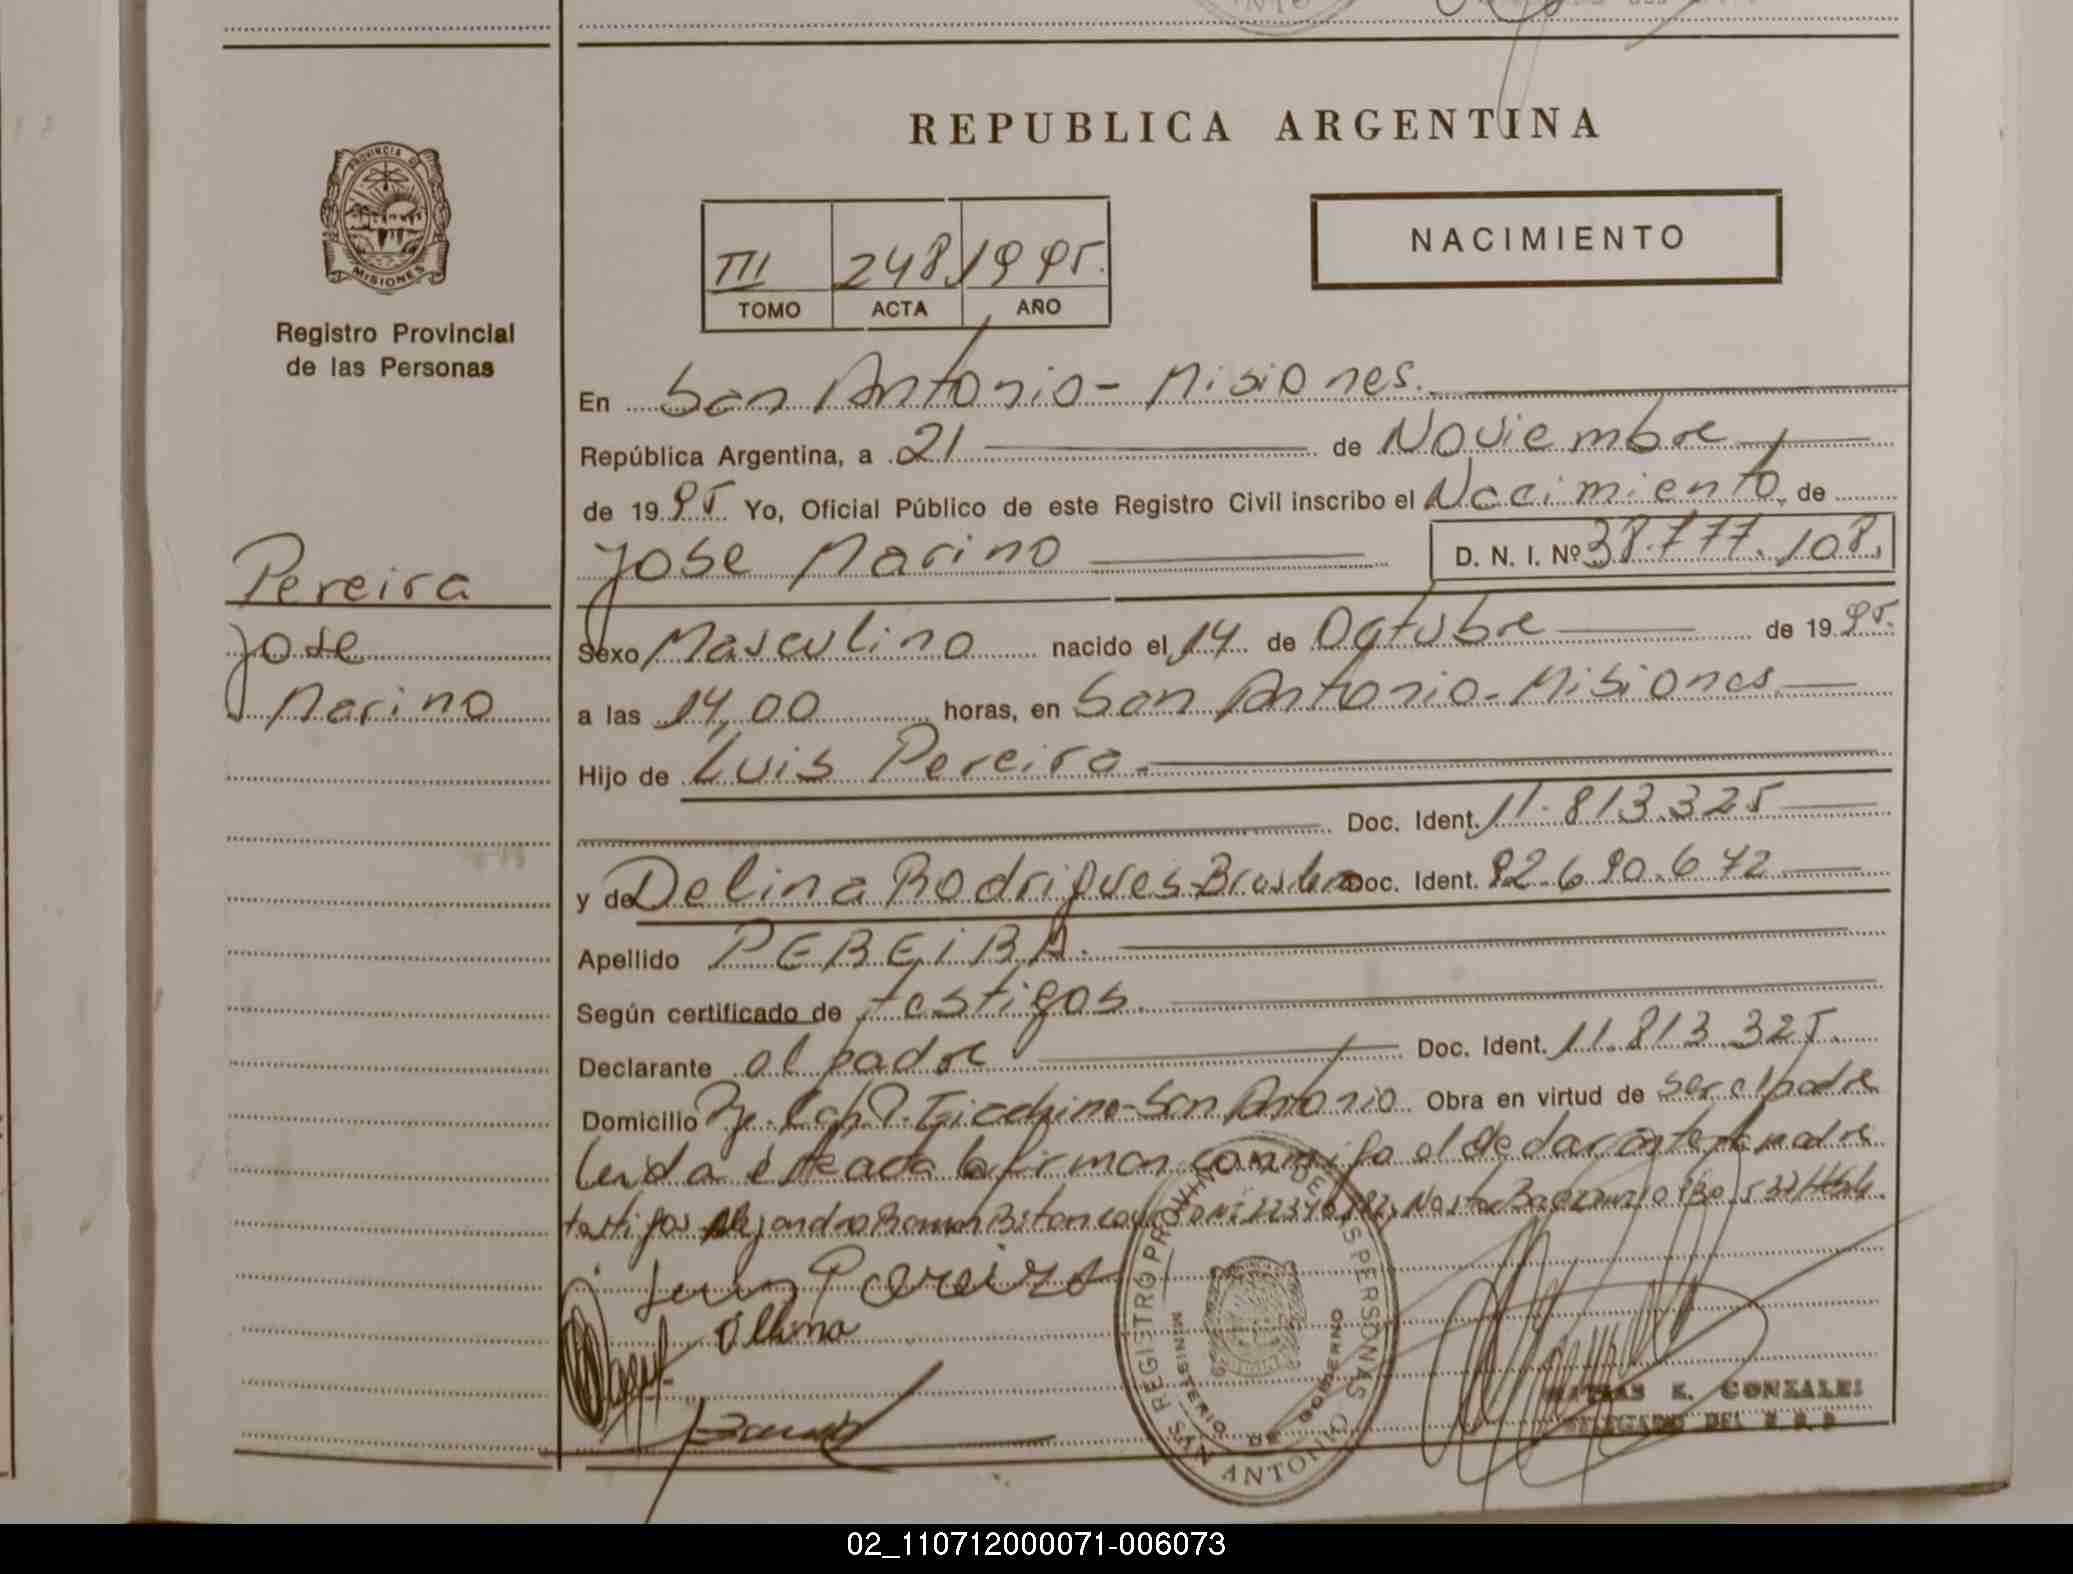 REPUBLICA ARGENTINA
PROVINCIA DE
MISIONES
Registro Provincial
de las Personas
III 248 1995.
TOMO ACTA AÑO
NACIMIENTO
En San Antonio - Misiones.
República Argentina, a 21 de Noviembre
de 1995 Yo, Oficial Público de este Registro Civil inscribo el Nacimiento de
Jose Marino D. N. I. Nº 38.777.108.
Pereira
Jose
Marino
Sexo Masculino nacido el 14 de Octubre de 1995.
a las 14,00 horas, en San Antonio - Misiones
Hijo de Luis Pereira.
Doc. Ident. 11.813.325
y de Delina Rodrigues - Doc. Ident. 92.690.672
Apellido PEREIRA.
Según certificado de testigos.
Declarante el padre Doc. Ident. 11.813.325.
Domicilio San Antonio Obra en virtud de ser el padre
Leida el acta la firman conmigo el declarante la madre
testigos Alejandro Ramon
Luis Pereira
REGISTRO PROVINCIAL DE LAS PERSONAS
MINISTERIO DE GOBIERNO
SAN ANTONIO
K. GONZALEZ
DELEGADO DEL R.P.P
02_110712000071-006073